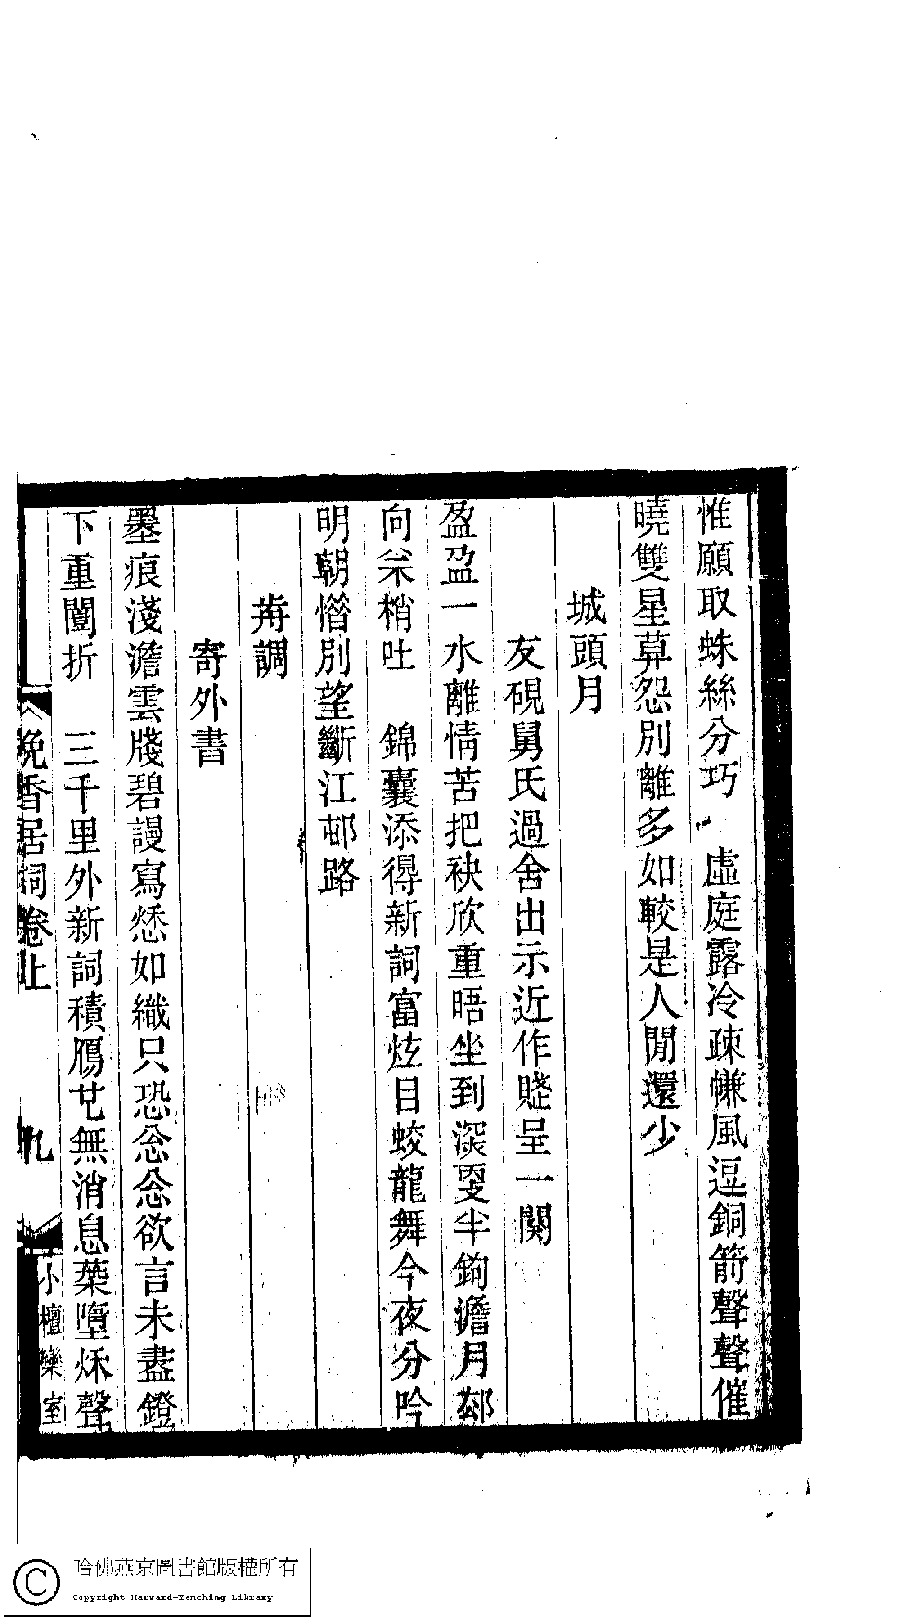 惟願取蛛絲分巧　虛庭露冷疎慊風逗銅箭聲聲催
曉雙星莫怨別離多如較是人閒還少
城頭月
友硯舅氏過舍出示近作賤呈一闋
盈盈一水離情苦把袂欣重晤坐到深更半鉤澹月卻
向柴梢吐　錦囊添得新詞富炫目蛟龍舞今夜分吟
明朝慳別望斷江邨路
前調
寄外書
墨痕淺澹雲牋碧謾寫愁如織只恐怱怱欲言未盡鐙
下重闓折　三千里外新詞積鴈也無消息葉墮秌聲
晚香居詞卷上
九
小檀欒室
哈佛燕京圖書館版權所有
Copyright Harvard-Yenching Library